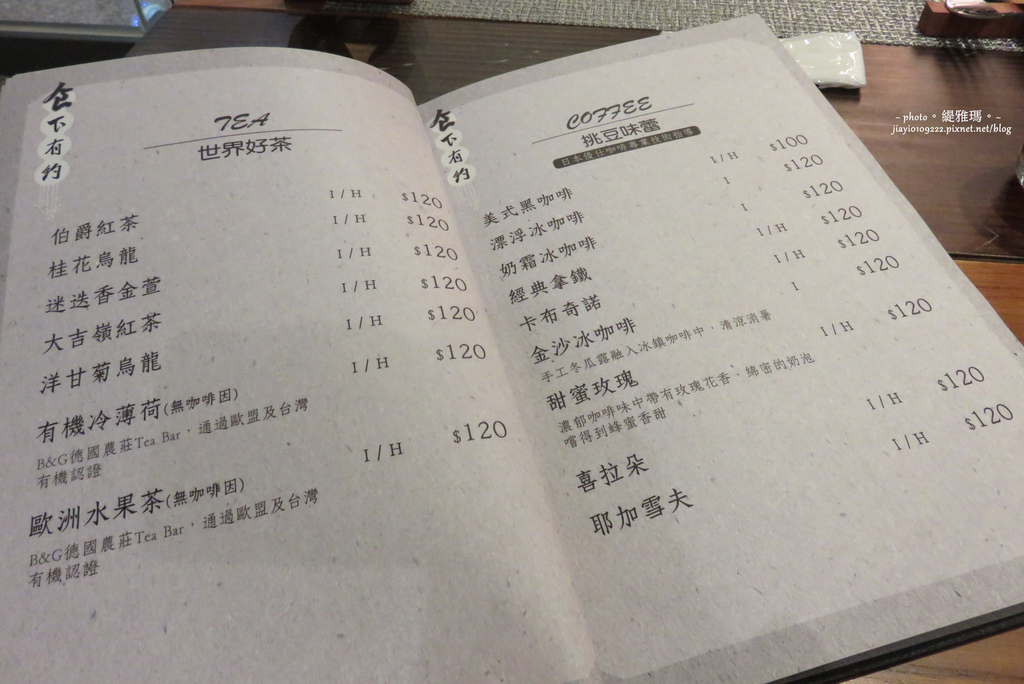 仝下有約
TEA
世界好茶
伯爵紅茶 I / H $120
桂花烏龍 I / H $120
迷迭香金萱 I / H $120
大吉嶺紅茶 I / H $120
洋甘菊烏龍 I / H $120
有機冷薄荷(無咖啡因) I / H $120
B&G德國農莊Tea Bar，通過歐盟及台灣
有機認證
歐洲水果茶(無咖啡因) I / H $120
B&G德國農莊Tea Bar，通過歐盟及台灣
有機認證
仝下有約
COFFEE
挑豆味蕾
日本優仕咖啡專業技術指導
美式黑咖啡 I / H $100
漂浮冰咖啡 I $120
奶霜冰咖啡 I $120
經典拿鐵 I / H $120
卡布奇諾 I / H $120
金沙冰咖啡 I $120
手工冬瓜露融入冰鎮咖啡中，清涼消暑
甜蜜玫瑰 I / H $120
濃郁咖啡味中帶有玫瑰花香，綿密的奶泡
嚐得到蜂蜜香甜
喜拉朵 I / H $120
耶加雪夫 I / H $120
~ photo。緹雅瑪。~
jiayio109222.pixnet.net/blog